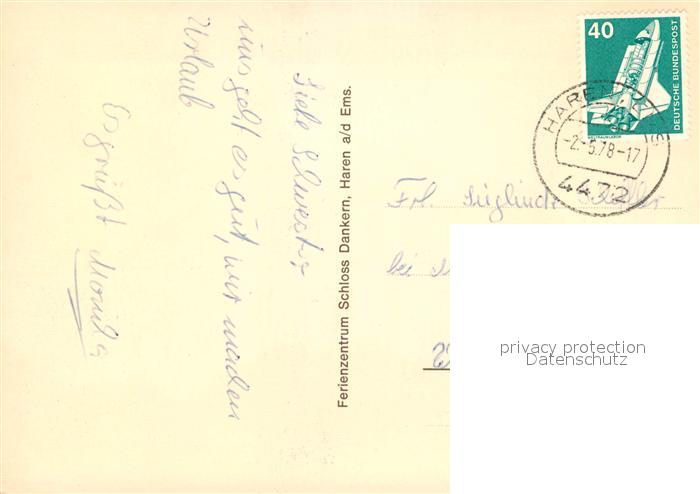 Liebe Schwester
uns geht es gut, wir machen
Urlaub
Es grüßt Monika
Ferienzentrum Schloss Dankern, Haren a/d Ems.
40
DEUTSCHE BUNDESPOST
HAREN
-2.-5.78-17
4472
Frl. Sieglinde
bei
privacy protection
Datenschutz